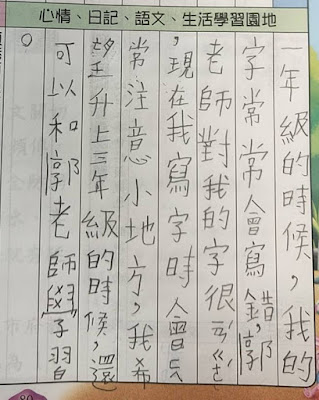 心情、日記、語文、生活學習園地
一年級的時候，我的
字常常會寫錯，郭
老師對我的字很
，現在我寫字時會
常注意小地方，我希
望升上三年級的時候，還
可以和郭老師學習
。